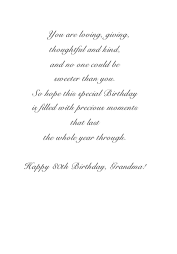 You are loving, giving,
thoughtful and kind,
and no one could be
sweeter than you.
So hope this special Birthday
is filled with precious moments
that last
the whole year through.
Happy 80th Birthday, Grandma!